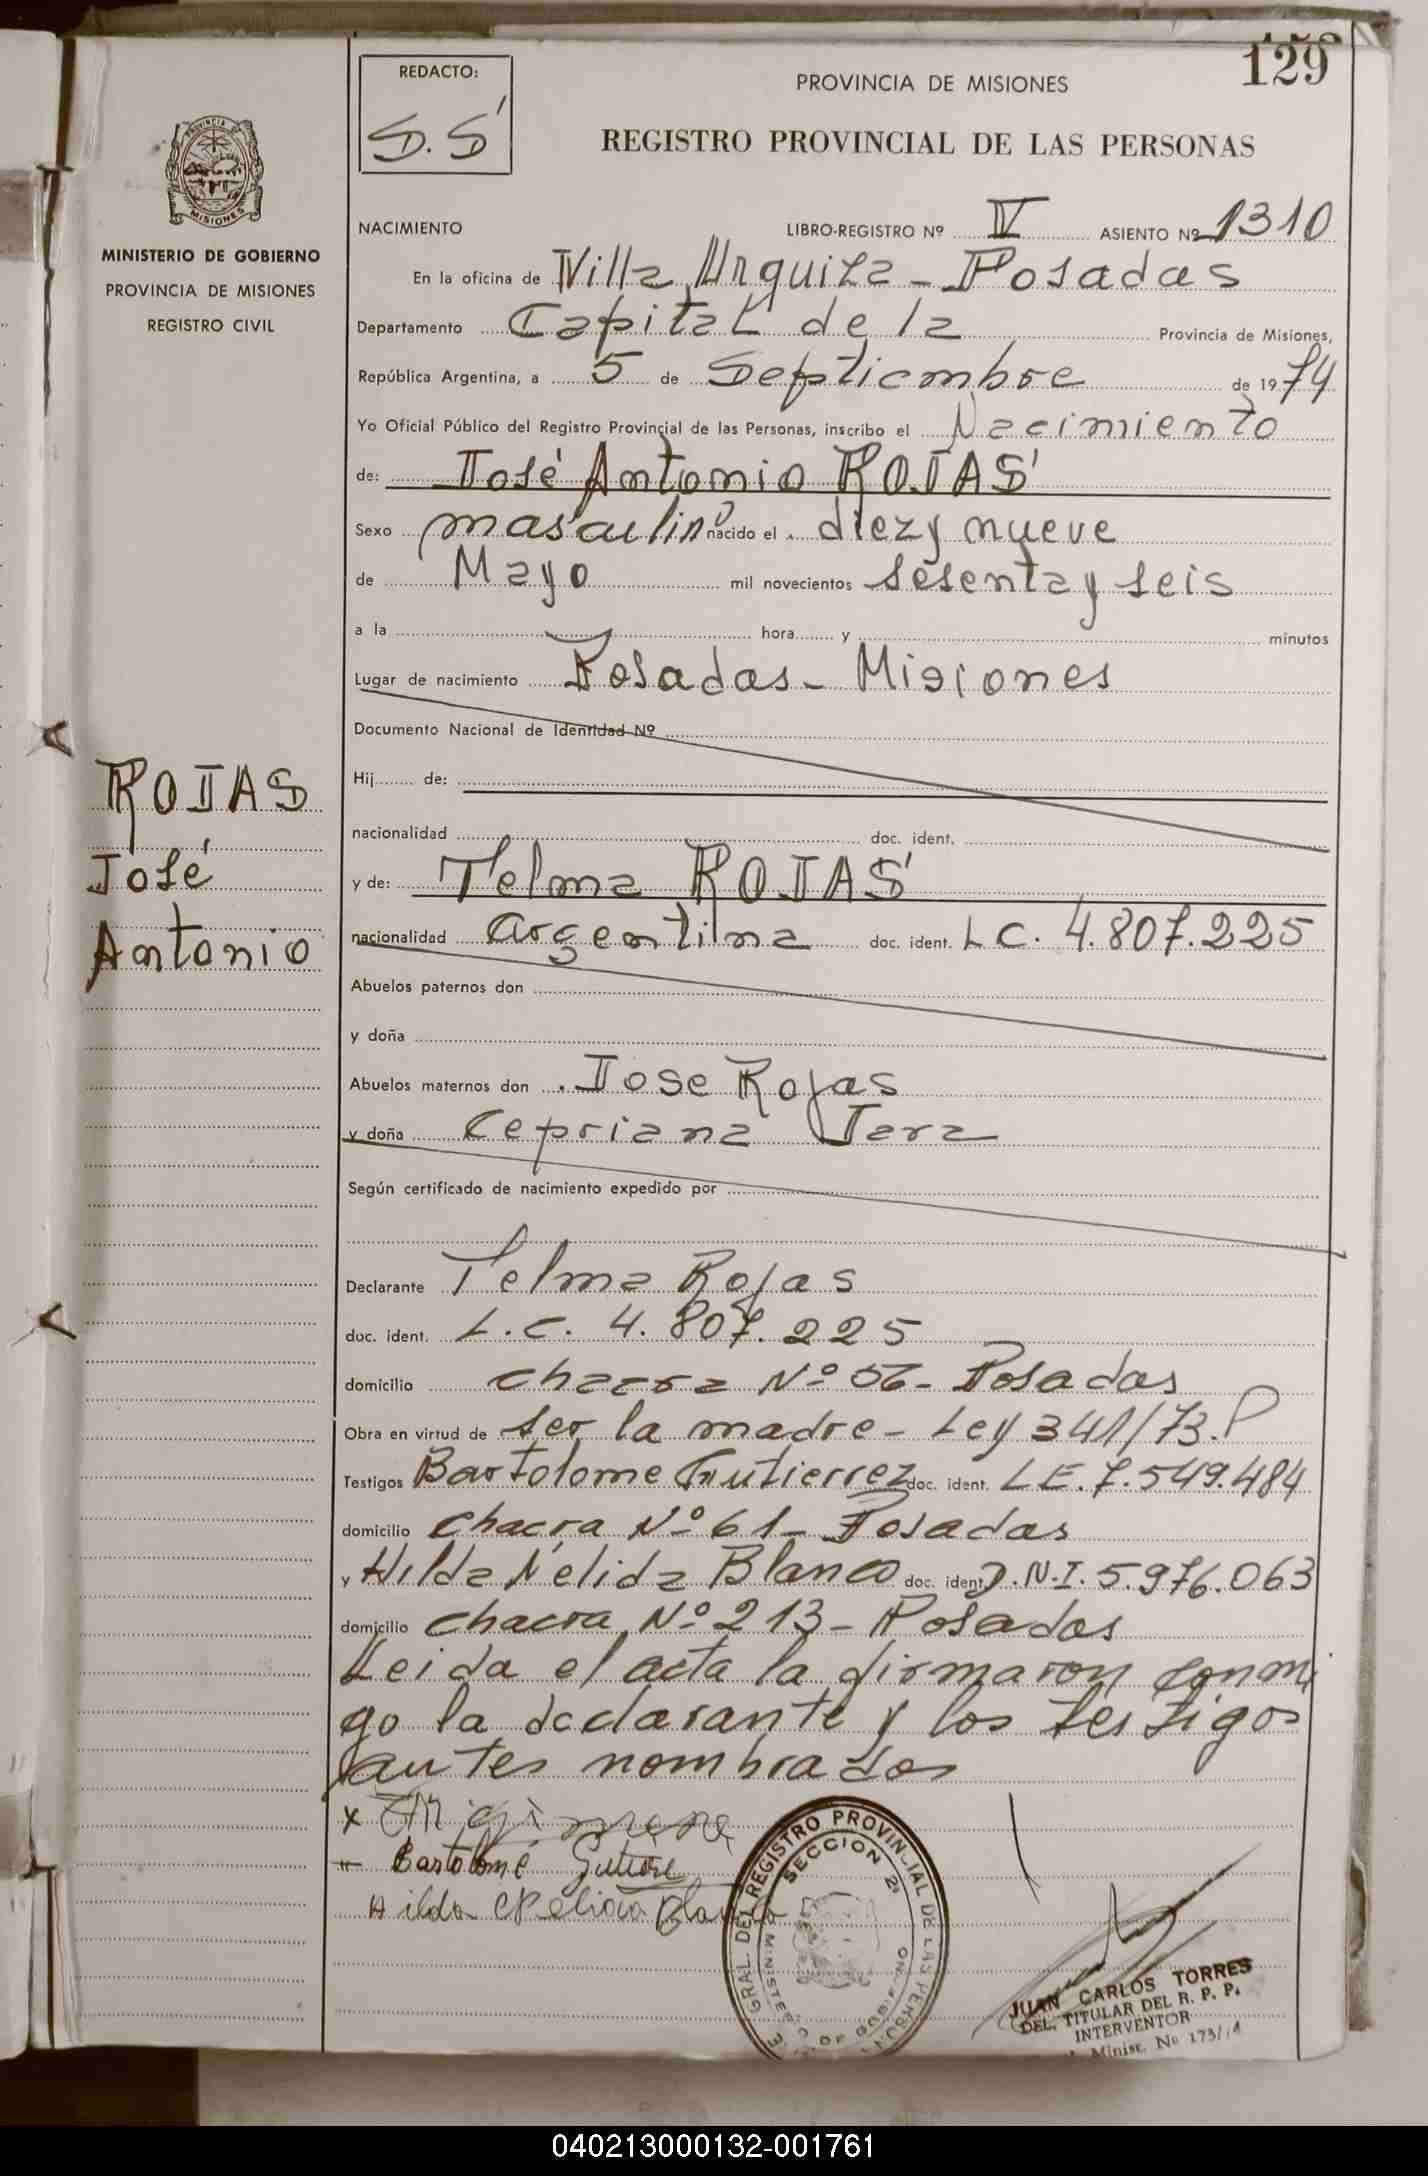 129
REDACTO:
S.S
PROVINCIA DE MISIONES
REGISTRO PROVINCIAL DE LAS PERSONAS
PROVINCIA DE
MISIONES
MINISTERIO DE GOBIERNO
PROVINCIA DE MISIONES
REGISTRO CIVIL
NACIMIENTO LIBRO-REGISTRO Nº IV ASIENTO Nº 1310
En la oficina de Villa Urquiza - Posadas
Departamento Capital de la Provincia de Misiones,
República Argentina, a 5 de Septiembre de 1974
Yo Oficial Público del Registro Provincial de las Personas, inscribo el Nacimiento
de: José Antonio ROJAS
Sexo masculino nacido el diez y nueve
de Mayo mil novecientos sesenta y seis
a la hora y minutos
Lugar de nacimiento Posadas - Misiones
Documento Nacional de Identidad Nº
Hij de:
nacionalidad doc. ident.
y de: Telma ROJAS
nacionalidad argentina doc. ident. L C. 4.807.225
Abuelos paternos don
y doña
Abuelos maternos don Jose Rojas
y doña Cepriana Jara
Según certificado de nacimiento expedido por
ROJAS
José
Antonio
Declarante Telma Rojas
doc. ident. L.C. 4.807.225
domicilio chacra Nº 56 - Posadas
Obra en virtud de ser la madre - Ley 341/73.P
Testigos Bartolome Gutierrez doc. ident. LE. 7.549.484
domicilio chacra Nº 61 - Posadas
y Hilda Nelida Blanco doc. ident. D.N.I. 5.976.063
domicilio chacra Nº 213 - Posadas
Leida el acta la firmaron conmi
go la declarante y los testigos
antes nombrados
x
Bartolomé Gutiere
Hilda Nelida Blanco
GRAL. DEL REGISTRO PROVINCIAL DE LAS PERSON
SECCION 2ª
MINISTERIO DE GOBIERNO
JUAN CARLOS TORRES
DEL. TITULAR DEL R. P. P.
INTERVENTOR
Minist. Nº 173/74
040213000132-001761